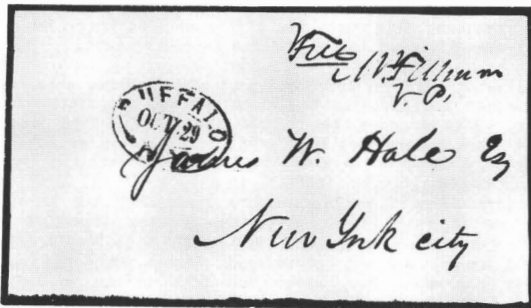 Free
M. Fillmore
V. P.
BUFFALO
OCT 29
N.Y.
James W. Hale Esq
New York city